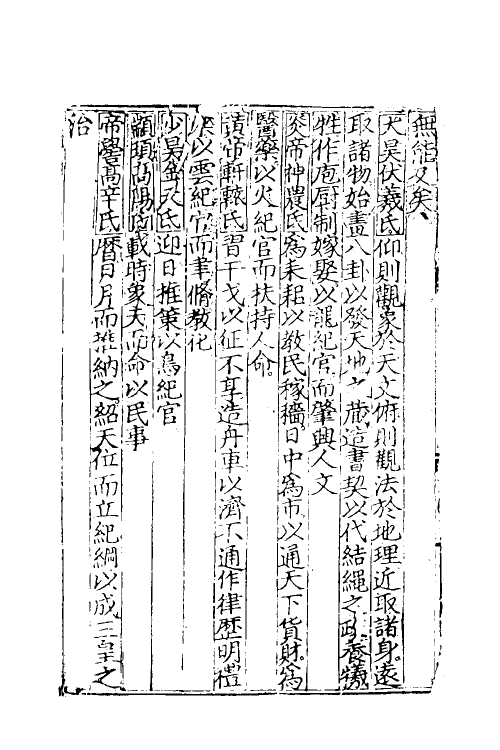 無能及矣
大昊伏羲氏仰則觀象於天文俯則觀法於地理近取諸身遠
取諸物始畫八卦以發天地之藏造書契以代結繩之政養犧
牲作庖厨制嫁娶以龍紀官而肇興人文
炎帝神農氏為耒耜以教民稼穡日中為市以通天下貨財為
醫藥以火紀官而扶持人命
黃帝軒轅氏習干戈以征不享造舟車以濟不通作律曆明禮
樂以雲紀官而聿脩教化
少昊金天氏迎日推策以鳥紀官
顓頊高陽氏載時象天而命以民事
帝嚳高辛氏曆日月而推納之紹天位而立紀綱以成三皇之
治